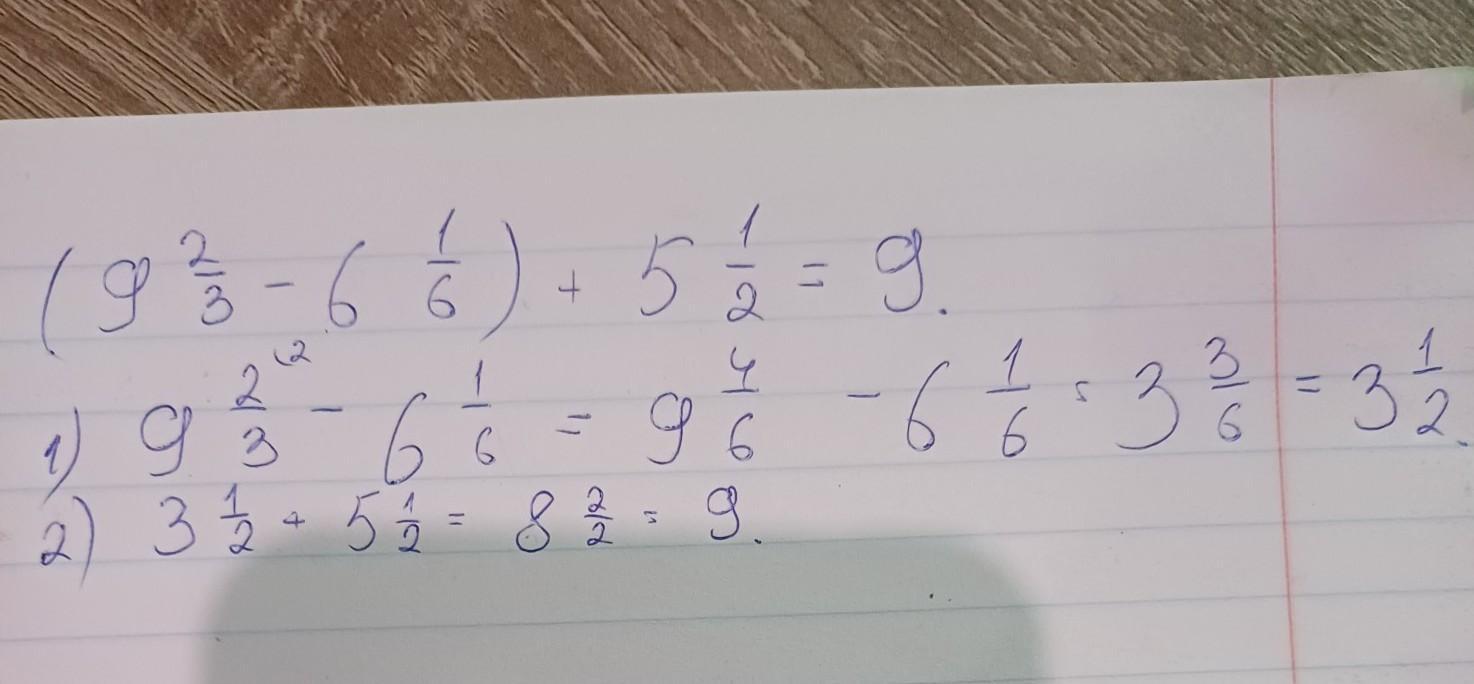 (9 2/3 - 6 1/6) + 5 1/2 = 9.
1) 9 2/3 (2 - 6 1/6 = 9 4/6 - 6 1/6 = 3 3/6 = 3 1/2.
2) 3 1/2 + 5 1/2 = 8 2/2 = 9.